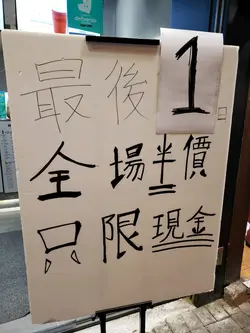 最後1日
全場半價
只限現金